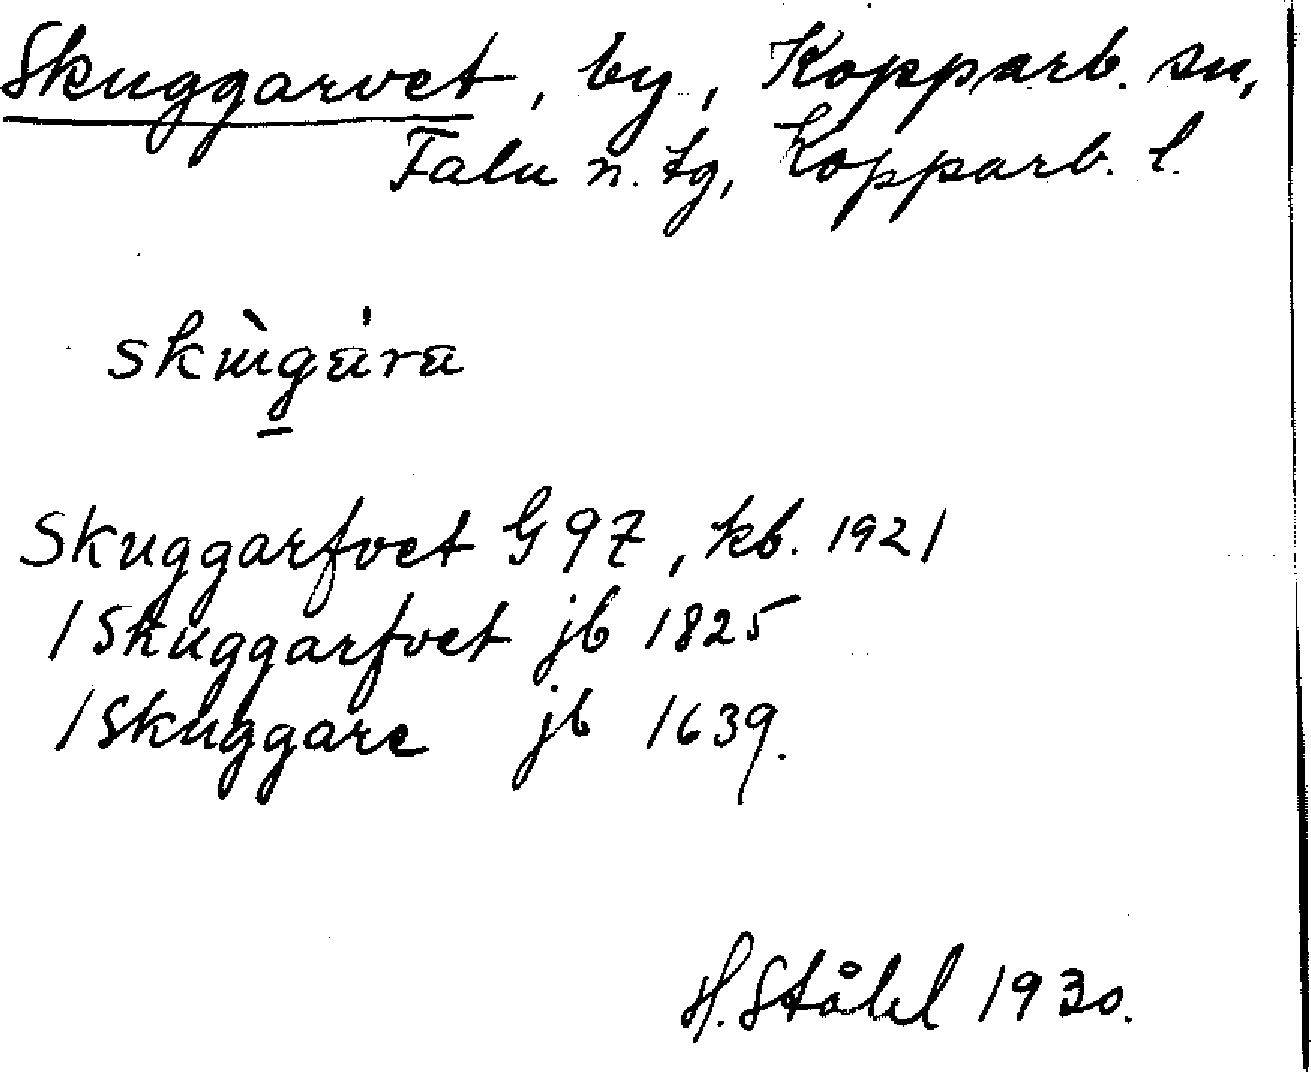 Skuggarvet, by, Kopparb. sn,
Falu n. tg, Kopparb. l.
Skuggarfvet G 97, kb. 1921
1 Skuggarfvet jb 1825
1 Skuggare jb 1639.
H. Ståhl 1930.